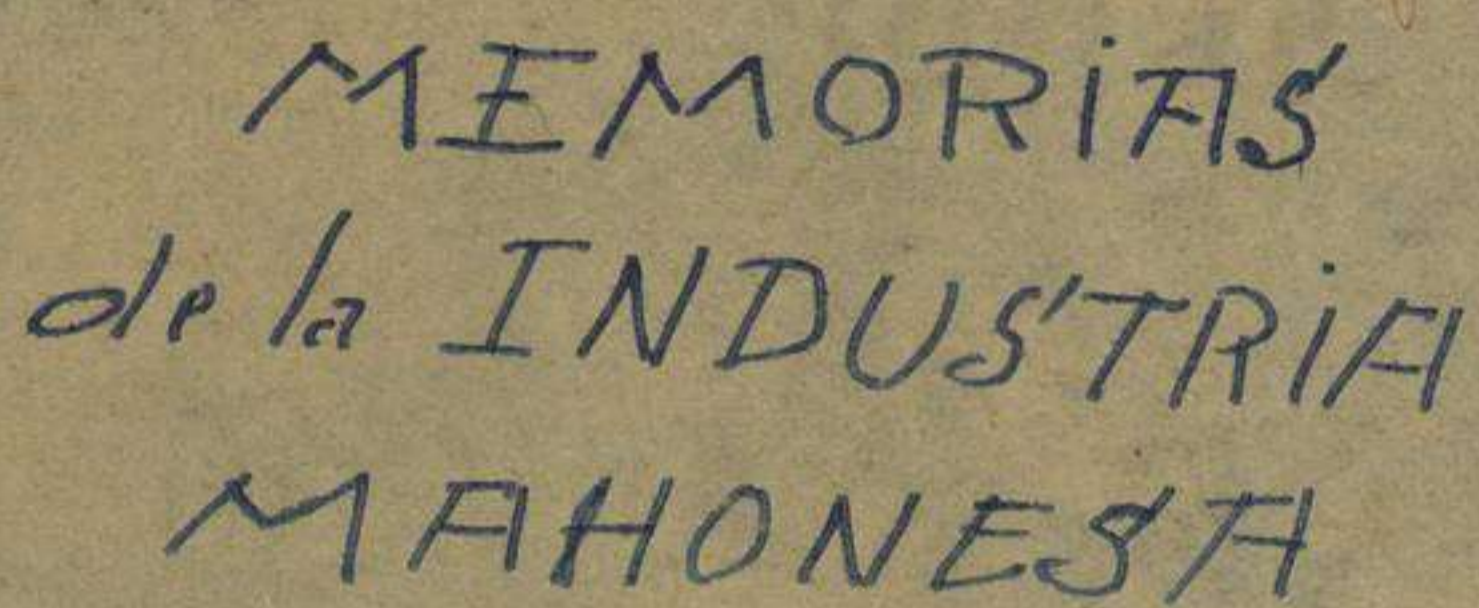 MEMORIAS
de la INDUSTRIA
MAHONESA